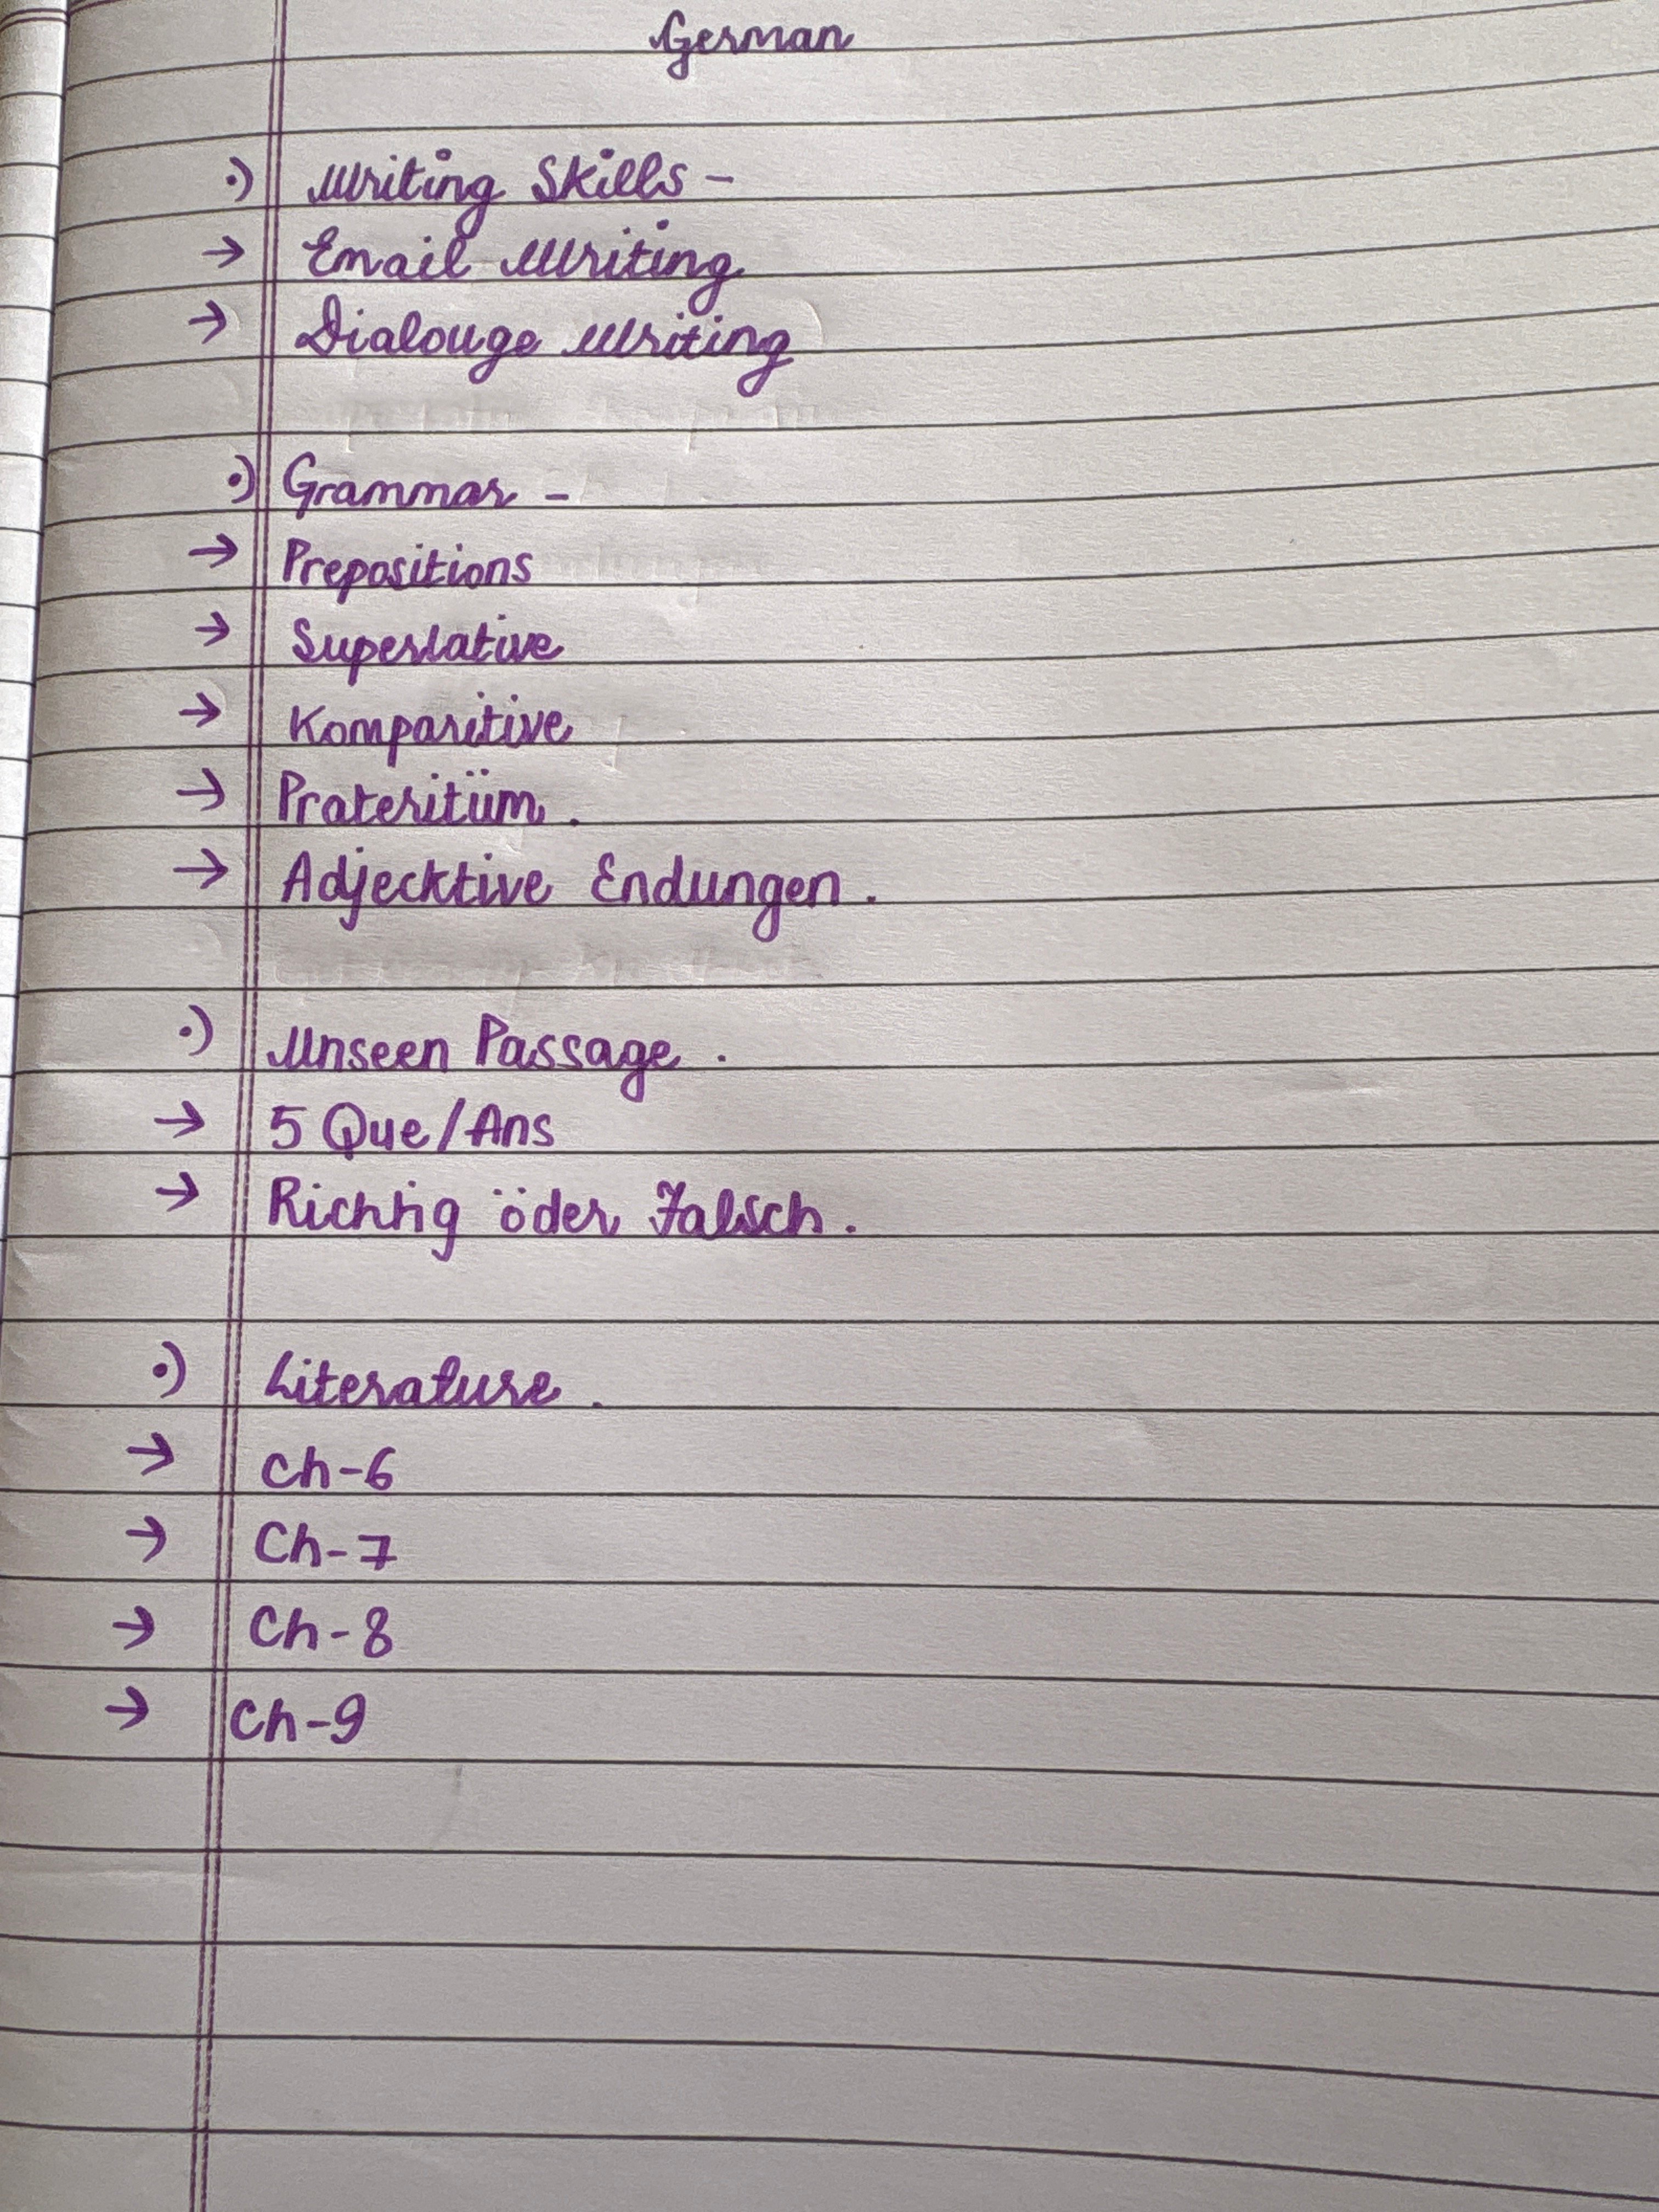 German
•) Writing Skills -
→ Email Writing
→ Dialouge Writing
•) Grammar -
→ Prepositions
→ Superlative
→ Komparitive
→ Prateritüm.
→ Adjecktive Endungen.
•) Unseen Passage.
→ 5 Que/Ans
→ Richtig öder Falsch.
•) Literature.
→ Ch-6
→ Ch-7
→ Ch-8
→ Ch-9